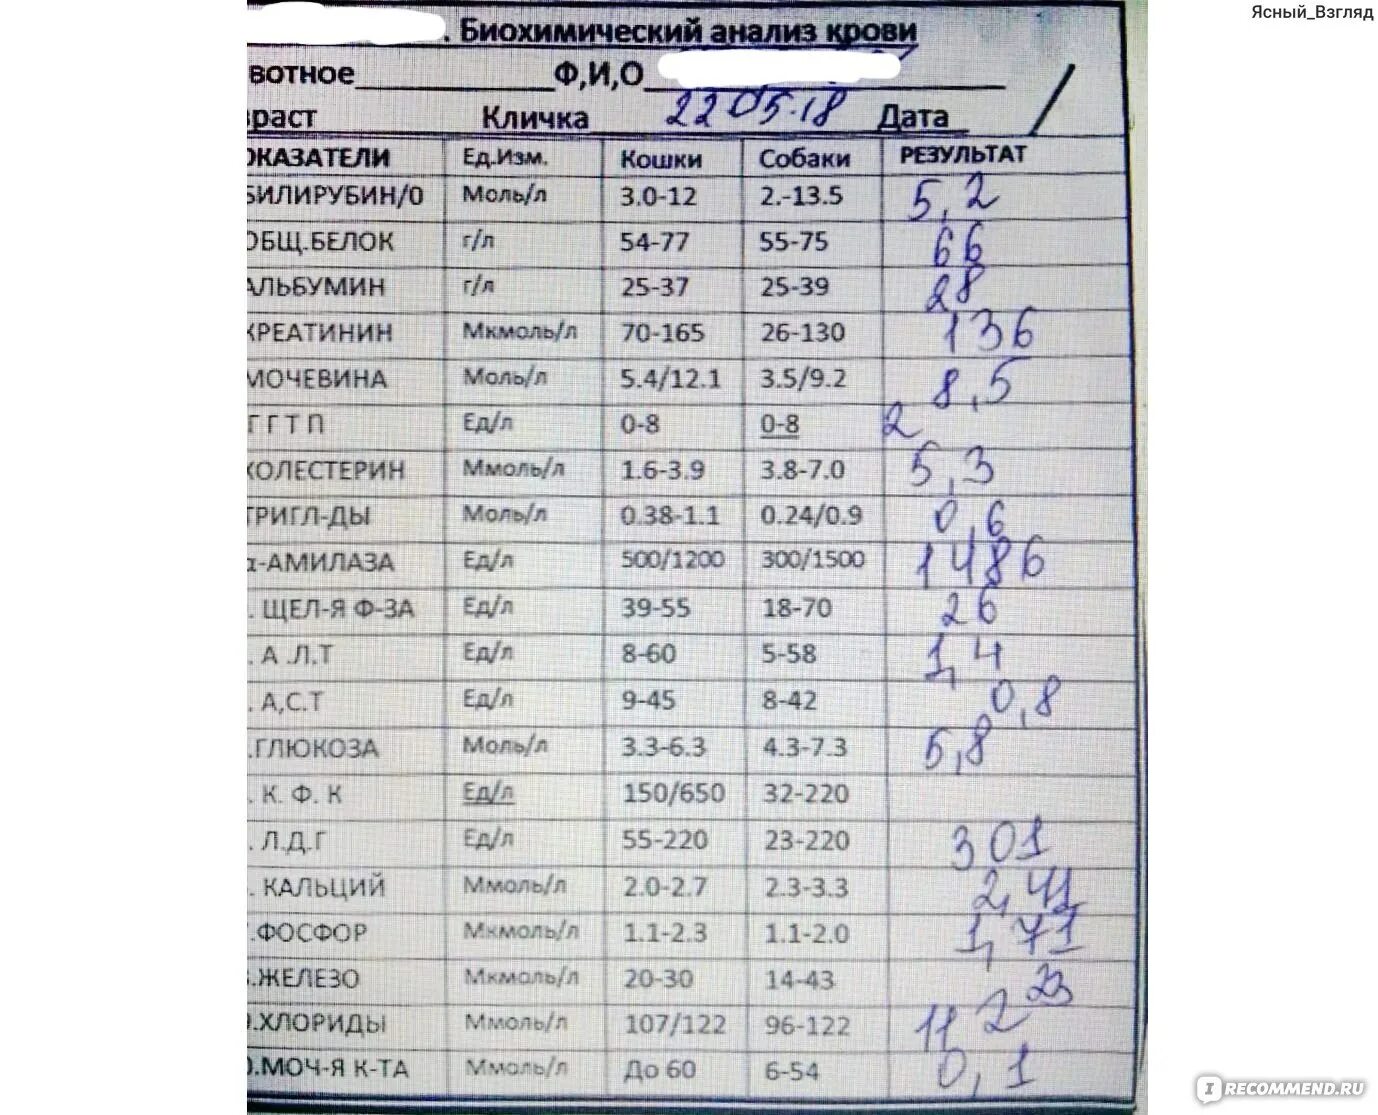 Ясный_Взгляд
. Биохимический анализ крови
вотное Ф,И,О
раст Кличка 22 05.18 Дата
ОКАЗАТЕЛИ Ед.Изм. Кошки Собаки РЕЗУЛЬТАТ
БИЛИРУБИН/0 Моль/л 3.0-12 2.-13.5 5,2
ОБЩ.БЕЛОК г/л 54-77 55-75 66
АЛЬБУМИН г/л 25-37 25-39 28
КРЕАТИНИН Мкмоль/л 70-165 26-130 136
МОЧЕВИНА Моль/л 5.4/12.1 3.5/9.2 8,5
Г Г Т П Ед/л 0-8 0-8 2
ХОЛЕСТЕРИН Ммоль/л 1.6-3.9 3.8-7.0 5,3
ТРИГЛ-ДЫ Моль/л 0.38-1.1 0.24/0.9 0,6
α-АМИЛАЗА Ед/л 500/1200 300/1500 1486
. ЩЕЛ-Я Ф-ЗА Ед/л 39-55 18-70 26
. А .Л.Т Ед/л 8-60 5-58 1,4
. А,С.Т Ед/л 9-45 8-42 0,8
.ГЛЮКОЗА Моль/л 3.3-6.3 4.3-7.3 5,8
. К. Ф. К Ед/л 150/650 32-220
. Л.Д.Г Ед/л 55-220 23-220 301
. КАЛЬЦИЙ Ммоль/л 2.0-2.7 2.3-3.3 2,41
.ФОСФОР Мкмоль/л 1.1-2.3 1.1-2.0 1,71
.ЖЕЛЕЗО Мкмоль/л 20-30 14-43 23
.ХЛОРИДЫ Ммоль/л 107/122 96-122 112
.МОЧ-Я К-ТА Ммоль/л До 60 6-54 0,1
IRECOMMEND.RU